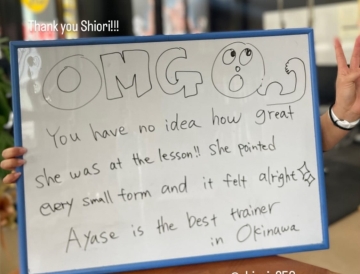 Thank you Shiori!!!
OMG
You have no idea how great
she was at the lesson!! She pointed
every small form and it felt alright
Ayase is the best trainer
in Okinawa